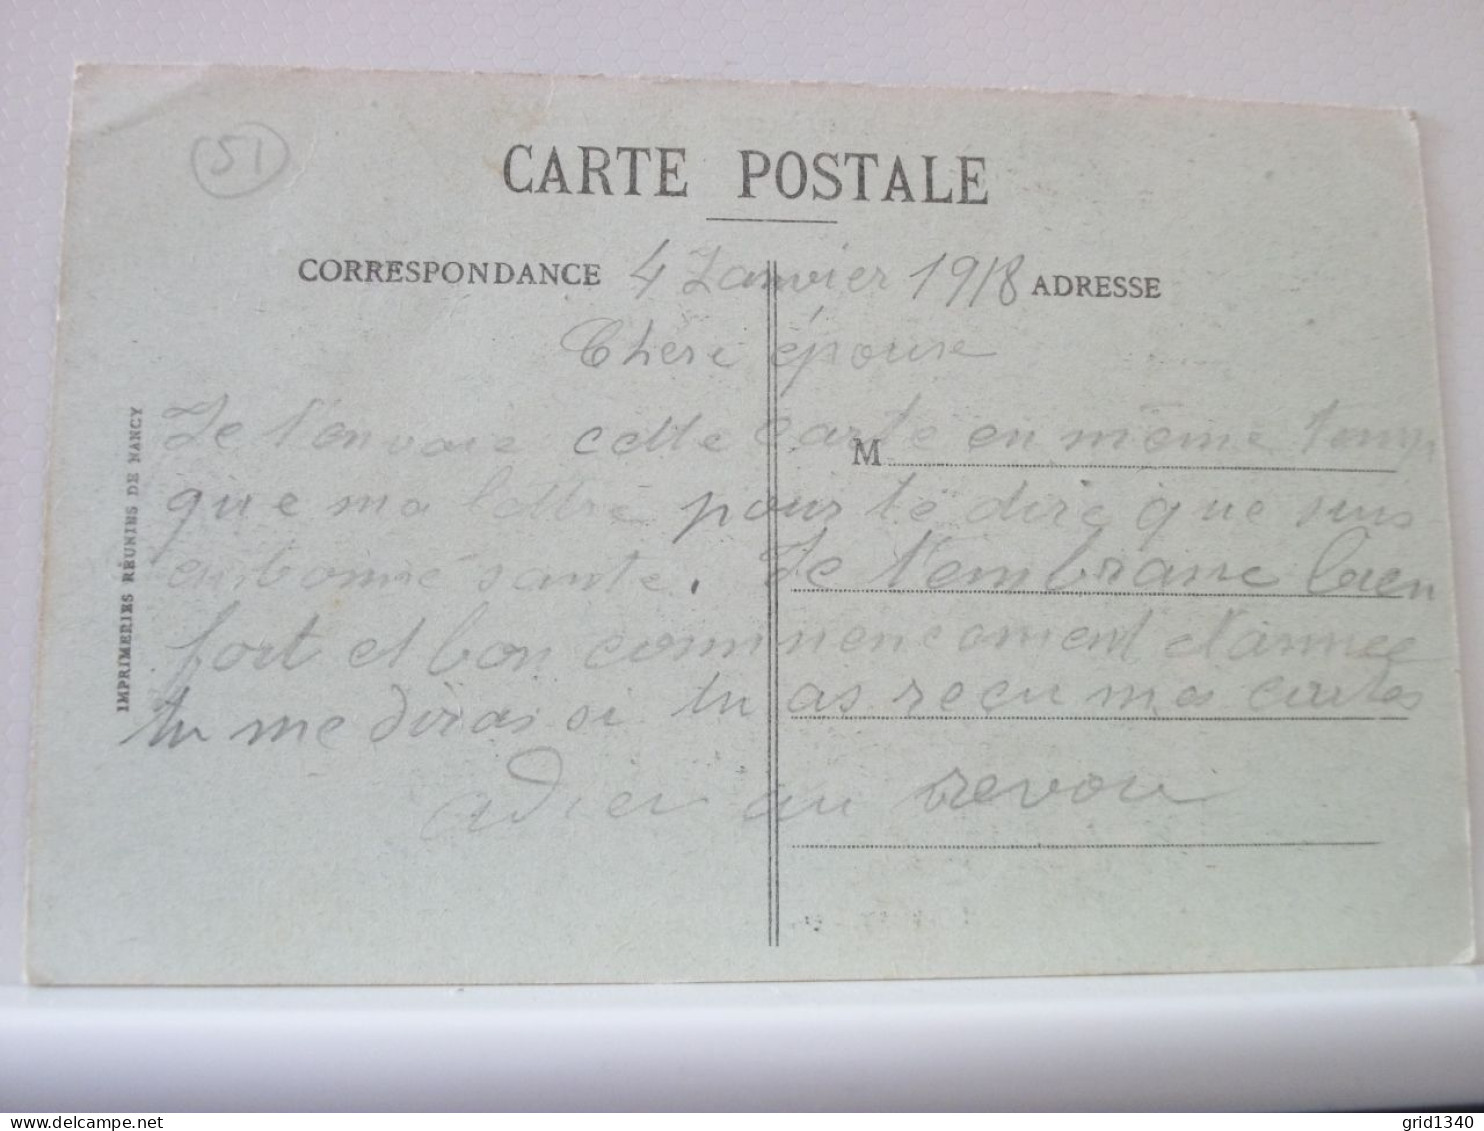 51
CARTE POSTALE
CORRESPONDANCE 4 Janvier 1918 ADRESSE
Chère épouse
Je t'envoie cette carte en même temps
M
que ma lettre pour te dire que suis
en bonne sante. Je t'embrasse bien
fort et bon commencement d'annee
tu me diras si tu as reçu mes cartes
adieu au revoir
IMPRIMERIES RÉUNIES DE NANCY
delcampe.net
grid1340